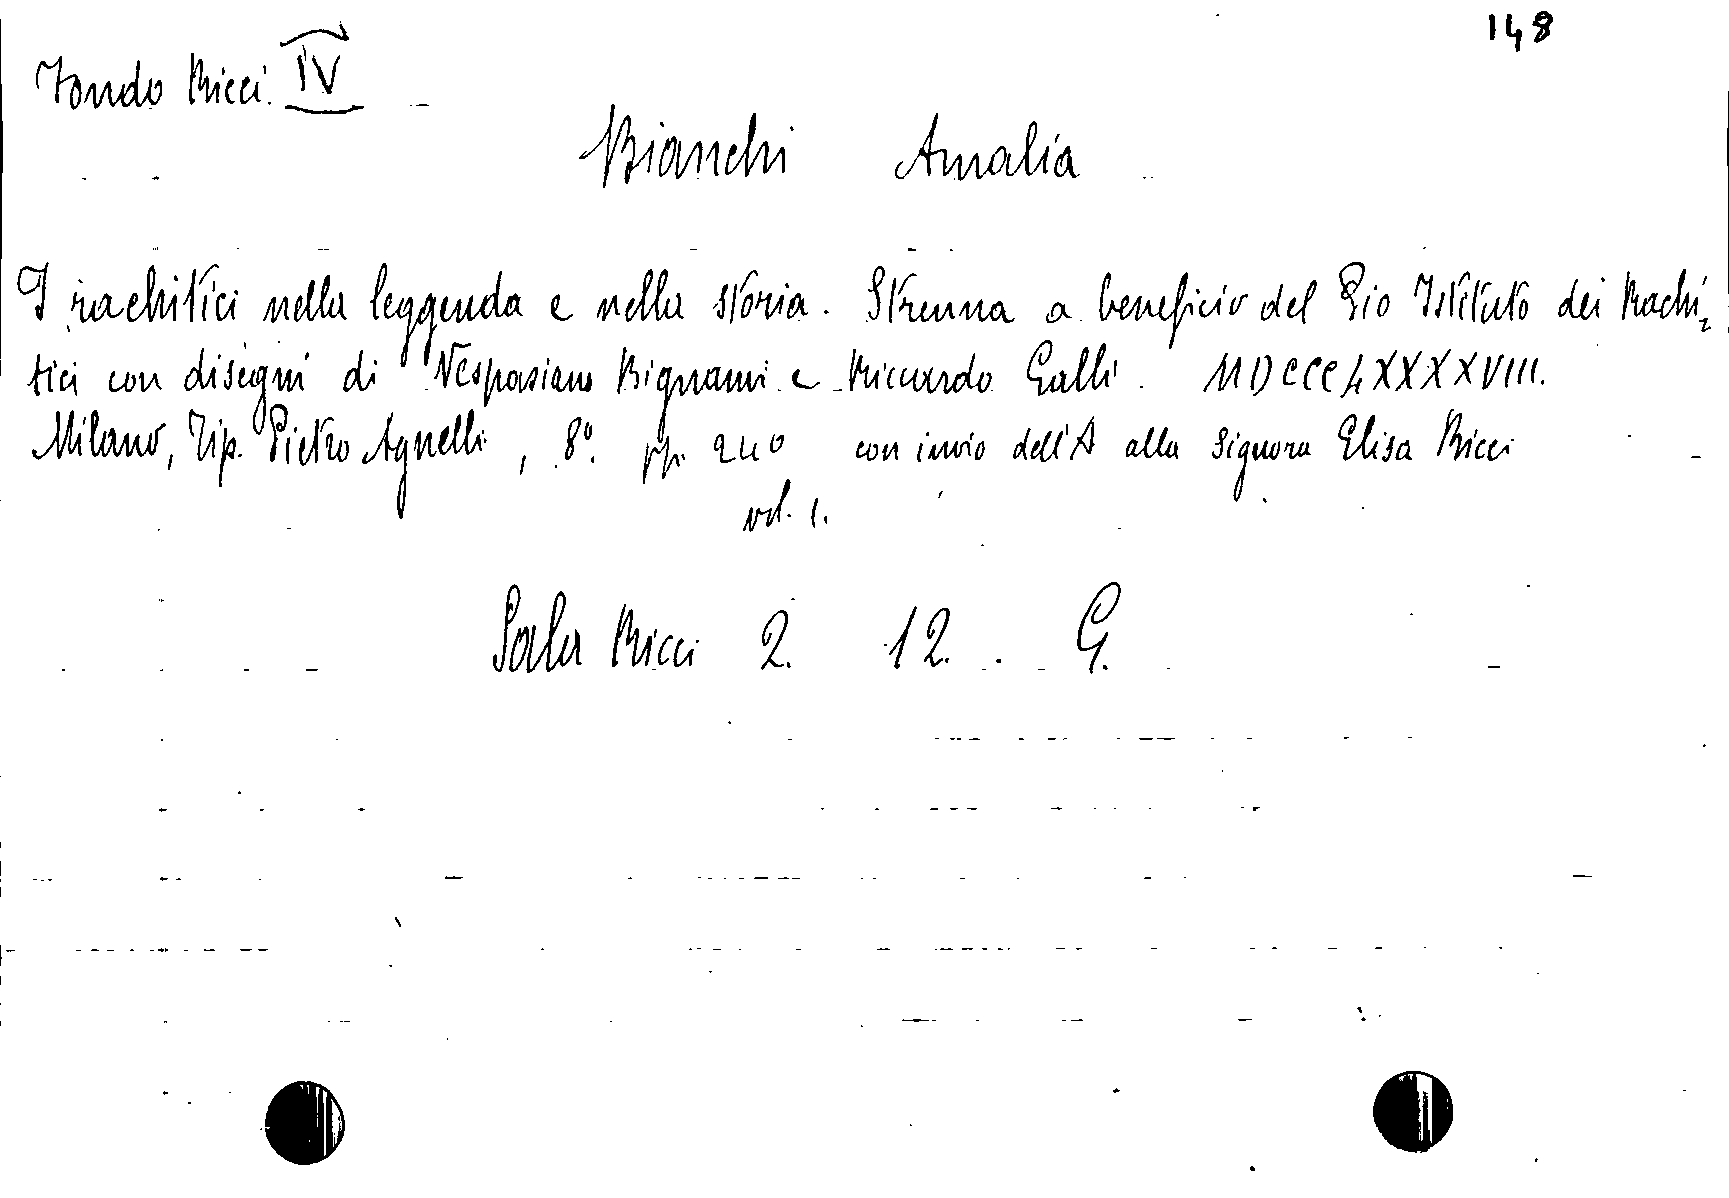 148
Fondo Ricci IV
Bianchi Amalia
I rachitici nella leggenda e nella storia. Strenna a beneficio del Pio Istituto dei Rachi-
tici con disegni di Vespasiano Bignami e Riccardo Galli. MDCCCLXXXXVIII.
Milano, Tip. Pietro Agnelli, 8°. pp. 240 con invio dell'A alla Signora Elisa Ricci
vol. 1.
Sala Ricci 2. 12. G.